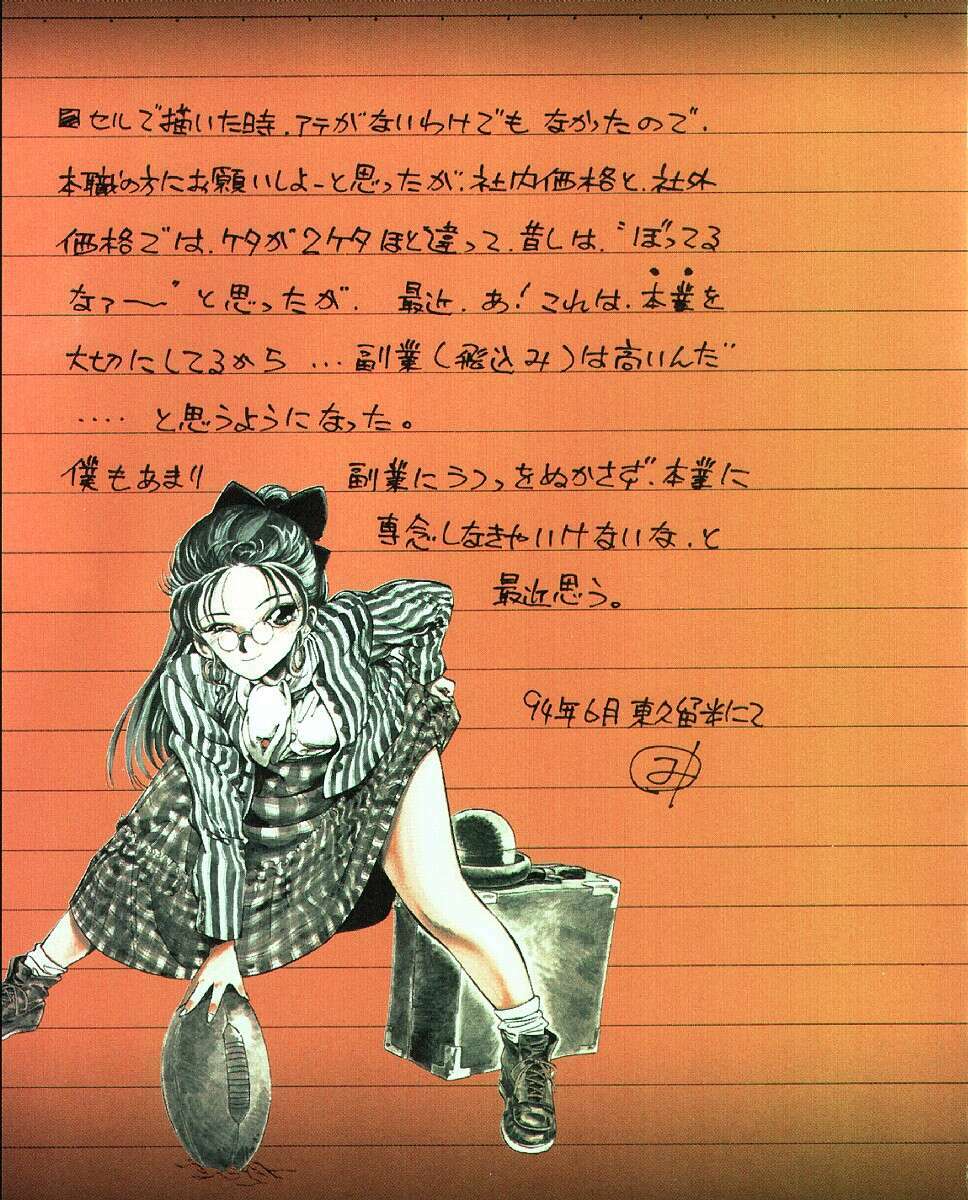 セルで描いた時、アテがないわけでもなかったので、
本職の方にお願いしよーと思ったが、社内価格と、社外
価格では、ケタが2ケタほど違って、昔しは、“ぼってる
なァ〜”と思ったが、最近、あ!これは、本業を
大切にしてるから…副業(飛込み)は高いんだ
‥‥と思うようになった。
僕もあまり副業にうつつをぬかさず、本業に
専念しなきゃいけないな、と
最近思う。
94年6月 東久留米にて
み